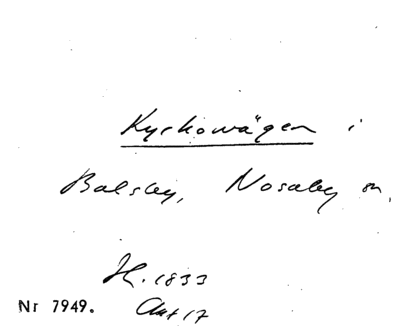 Kyrkowägen i
Balsby, Nosaby sn,
H. 1833
Nr 7949. Akt 17